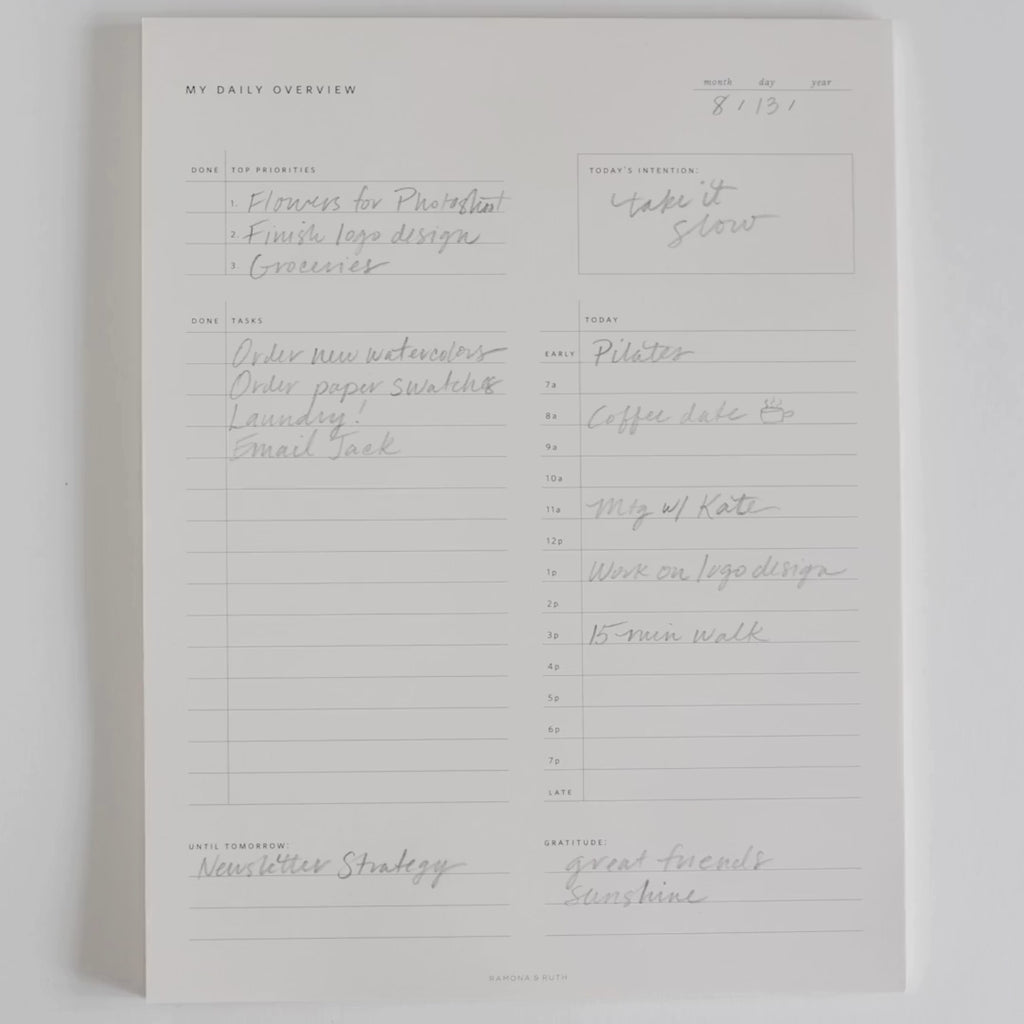 MY DAILY OVERVIEW
month day year
8 / 13 /
DONE TOP PRIORITIES
1. Flowers for Photoshoot
2. Finish logo design
3. Groceries
TODAY'S INTENTION:
take it
slow
DONE TASKS
Order new watercolors
Order paper swatches
Laundry!
Email Jack
TODAY
EARLY Pilates
7a
8a Coffee date
9a
10a
11a Mtg w/ Kate
12p
1p Work on logo design
2p
3p 15-min walk
4p
5p
6p
7p
LATE
UNTIL TOMORROW:
Newsletter Strategy
GRATITUDE:
great friends
sunshine
RAMONA & RUTH